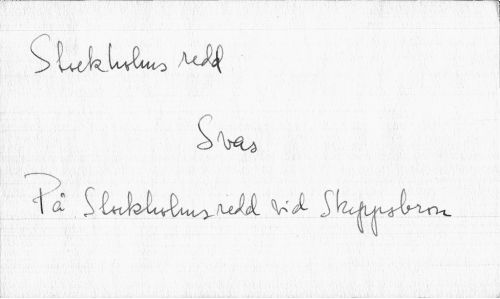 Stockholms redd
Svas
På Stockholms redd vid Skeppsbron